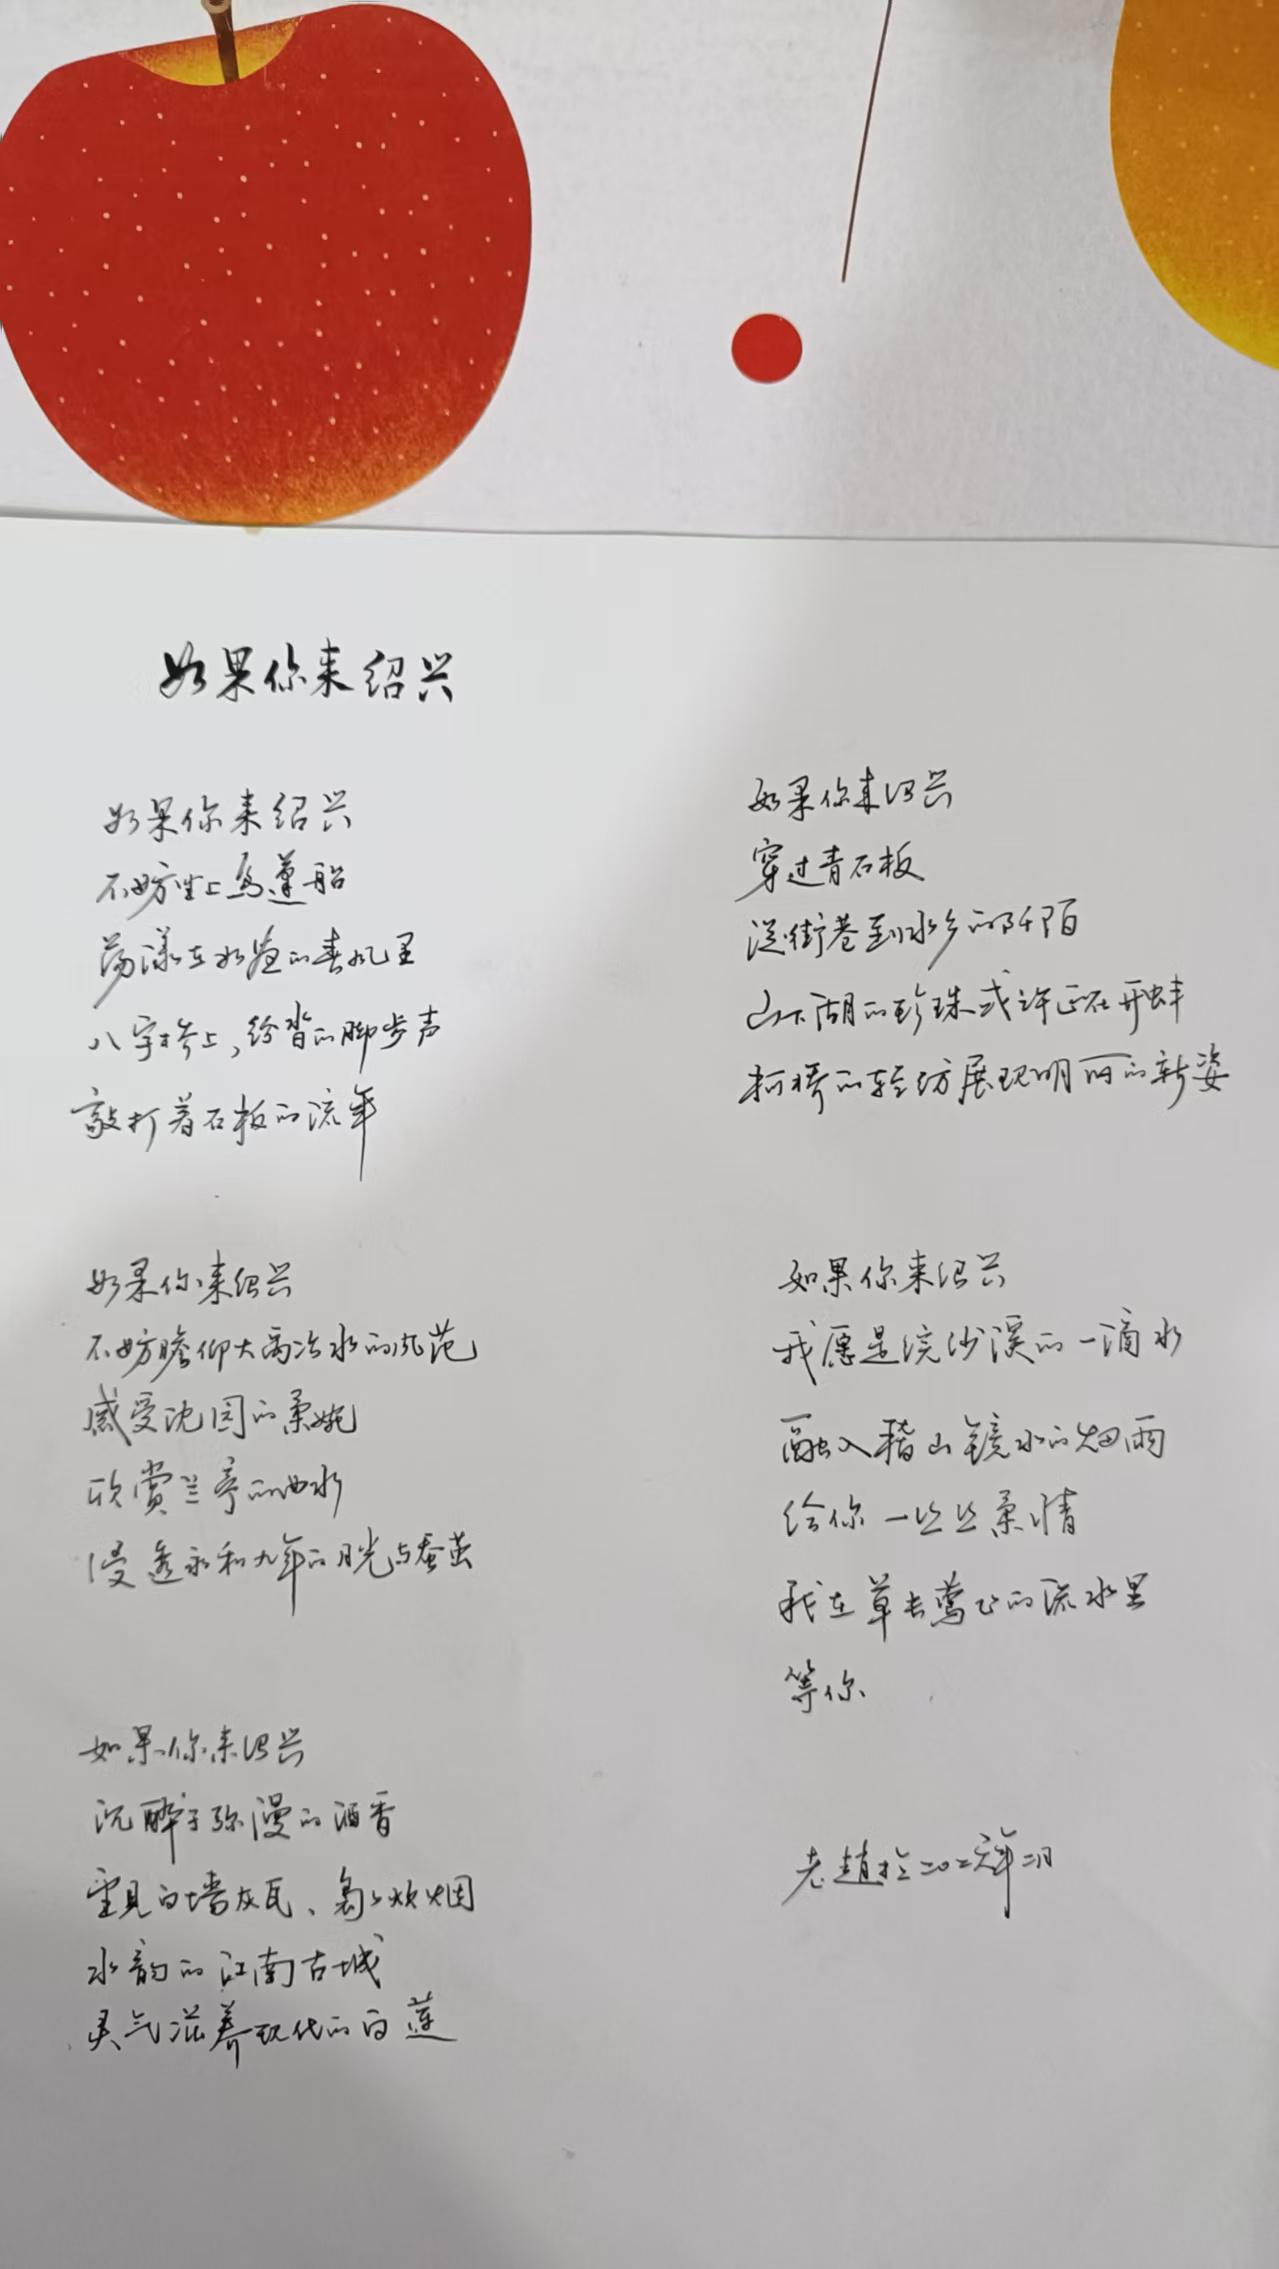 如果你来绍兴
如果你来绍兴
不妨坐上乌篷船
荡漾在水道的春风里
八字桥上,纷沓的脚步声
敲打着石板的流年
如果你来绍兴
不妨瞻仰大禹治水的风范
感受沈园的柔婉
欣赏兰亭的曲水
浸透永和九年的月光与蚕茧
如果你来绍兴
沉醉于弥漫的酒香
望见白墙灰瓦、袅袅炊烟
水韵的江南古城
灵气滋养现代的白莲
如果你来绍兴
穿过青石板
从街巷到水乡的阡陌
山下湖的珍珠或许正在开蚌
柯桥的轻纺展现明丽的新姿
如果你来绍兴
我愿是浣纱溪的一滴水
融入稽山镜水的烟雨
给你一丝丝柔情
我在草长莺飞的流水里
等你
老赵于二〇二六年二月